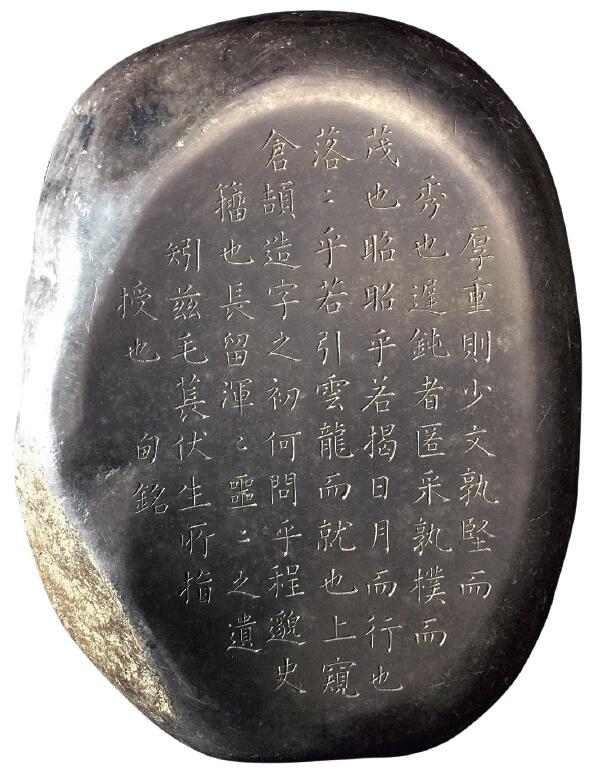 厚重則少文孰堅而
秀也遲鈍者匿采孰樸而
茂也昭昭乎若揭日月而行也
落〻乎若引雲龍而就也上窺
倉頡造字之初何問乎程邈史
籀也長留渾〻噩〻之遺
矧兹毛萇伏生所指
授也 甸銘